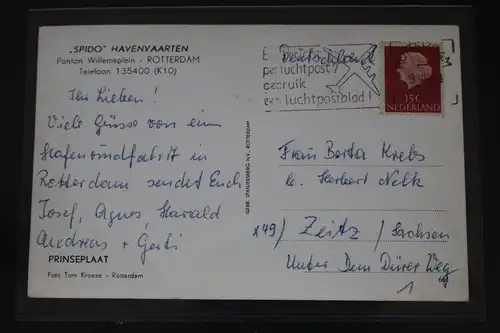 „SPIDO” HAVENVAARTEN
Ponton Willemsplein - ROTTERDAM
Telefoon 135400 (K10)
Ihr Lieben!
Viele Grüsse von ein
Hafenrundfahrt in
Rotterdam sendet Euch
Josef, Agnes, Harald
Andreas + Gerti
PRINSEPLAAT
Foto Tom Kroeze - Rotterdam
GEBR. SPANJERSBERG N.V., ROTTERDAM
Deutschland
per luchtpost?
gebruik
een luchtpostblad!
15c
NEDERLAND
Frau Berta Krebs
b. Herbert Nelk
x49/ Zeitz / Sachsen
Unter Dem Dürer Weg
1